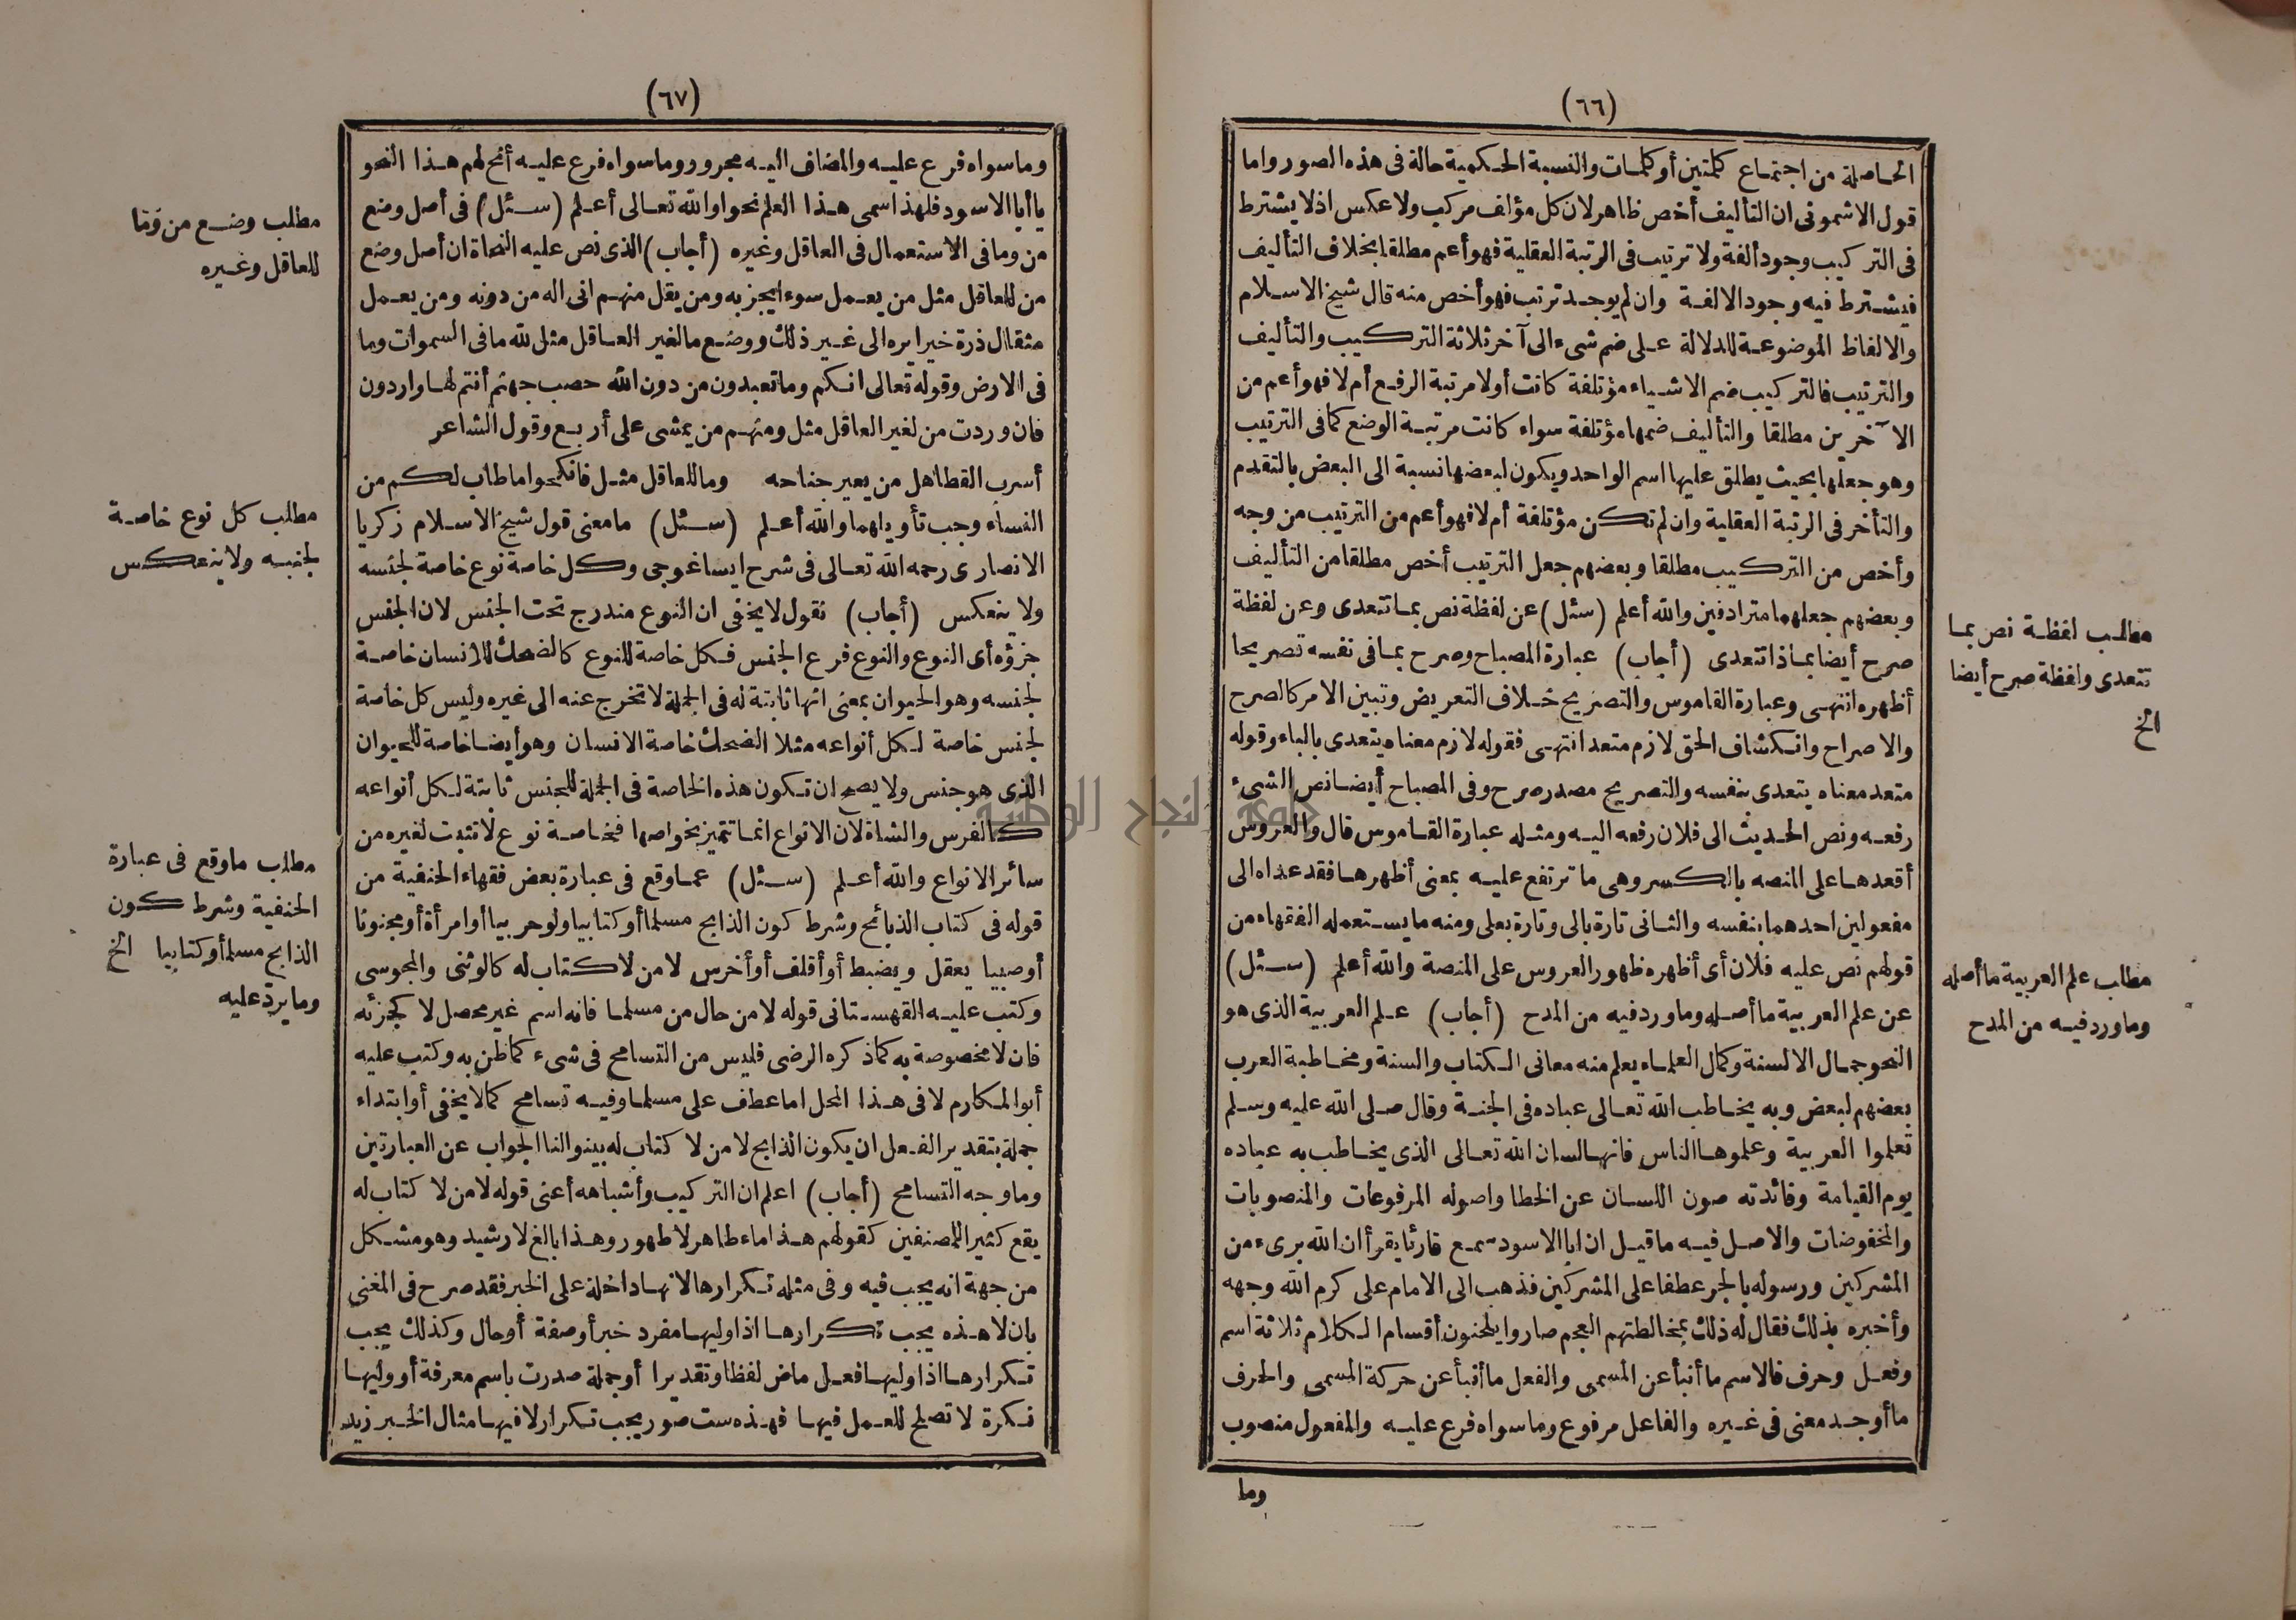 (٦٦)
الحاصلة من اجتماع كلمتين أو كلمات والنسبة الحكمية حالة فى هذه الصور واما
قول الاشمونى ان التأليف أخص ظاهر لان كل مؤلف مركب ولا عكس اذ لا يشترط
فى التركيب وجود ألفة ولا ترتيب فى الرتبة العقلية فهو أعم مطلقا بخلاف التأليف
فيشترط فيه وجود الالفة وان لم يوجد ترتب فهو أخص منه قال شيخ الاسلام
والالفاظ الموضوعة للدلالة على ضم شىء الى آخر ثلاثة التركيب والتأليف
والترتيب فالتركيب ضم الاشياء مؤتلفة كانت أولا مرتبة الرفع أم لا فهو أعم من
الآخرين مطلقا والتأليف ضمها مؤتلفة سواء كانت مرتبة الوضع كما فى الترتيب
وهو جعلها بحيث يطلق عليها اسم الواحد ويكون لبعضها نسبة الى البعض بالتقدم
والتأخر فى الرتبة العقلية وان لم تكن مؤتلفة أم لا فهو أعم من الترتيب من وجه
وأخص من التركيب مطلقا وبعضهم جعل الترتيب أخص مطلقا من التأليف
وبعضهم جعلهما مترادفين والله أعلم (سئل) عن لفظة نص بما تتعدى وعن لفظة
صرح أيضا بماذا تتعدى (أجاب) عبارة المصباح وصرح بما فى نفسه تصريحا
أظهره انتهى وعبارة القاموس والتصريح خلاف التعريض وتبين الامر كالصرح
والاصراح وانكشاف الحق لازم متعد انتهى فقوله لازم معناه يتعدى بالباء وقوله
متعد معناه يتعدى بنفسه والتصريح مصدر صرح وفى المصباح أيضا نص الشىء
رفعه ونص الحديث الى فلان رفعه اليه ومثله عبارة القاموس قال والعروس
أقعدها على المنصه بالكسر وهى ما ترتفع عليه بمعنى أظهرها فقد عداه الى
مفعولين احدهما بنفسه والثانى تارة بالى وتارة بعلى ومنه ما يستعمله الفقهاء من
قولهم نص عليه فلان أى أظهره ظهور العروس على المنصة والله أعلم (سئل)
عن علم العربية ما أصله وما ورد فيه من المدح (أجاب) علم العربية الذى هو
النحو جمال الالسنة وكمال العلماء يعلم منه معانى الكتاب والسنة ومخاطبة العرب
بعضهم لبعض وبه يخاطب الله تعالى عباده فى الجنة وقال صلى الله عليه وسلم
تعلموا العربية وعلموها الناس فانها لسان الله تعالى الذى يخاطب به عباده
يوم القيامة وفائدته صون اللسان عن الخطا واصوله المرفوعات والمنصوبات
والمخفوضات والاصل فيه ما قيل ان ابا الاسود سمع قارئا يقرأ ان الله برىء من
المشركين ورسوله بالجر عطفا على المشركين فذهب الى الامام على كرم الله وجهه
وأخبره بذلك فقال له ذلك بمخالطتهم العجم صاروا يلحنون أقسام الكلام ثلاثة اسم
وفعل وحرف فالاسم ما أنبأ عن المسمى والفعل ما أنبأ عن حركة المسمى والحرف
ما أوجد معنى فى غيره والفاعل مرفوع وما سواه فرع عليه والمفعول منصوب
وما
مطلب لفظة نص بما
تتعدى ولفظة صرح أيضا
الخ
مطلب علم العربية ما أصله
وما ورد فيه من المدح
(٦٧)
وما سواه فرع عليه والمضاف اليه مجرور وما سواه فرع عليه أنح لهم هذا النحو
يا أبا الاسود فلهذا سمى هذا العلم نحوا والله تعالى أعلم (سئل) فى أصل وضع
من وما فى الاستعمال فى العاقل وغيره (أجاب) الذى نص عليه النحاة ان أصل وضع
من للعاقل مثل من يعمل سوءا يجز به ومن يقل منهم انى اله من دونه ومن يعمل
مثقال ذرة خيرا يره الى غير ذلك ووضع ما لغير العاقل مثل لله ما فى السموات وما
فى الارض وقوله تعالى انكم وما تعبدون من دون الله حصب جهنم أنتم لها واردون
فان وردت من لغير العاقل مثل ومنهم من يمشى على أربع وقول الشاعر
أسرب القطا هل من يعير جناحه وما للعاقل مثل فانكحوا ما طاب لكم من
النساء وجب تأويلهما والله أعلم (سئل) ما معنى قول شيخ الاسلام زكريا
الانصارى رحمه الله تعالى فى شرح ايساغوجى وكل خاصة نوع خاصة لجنسه
ولا ينعكس (أجاب) نقول لا يخفى ان النوع مندرج تحت الجنس لان الجنس
جزؤه أى النوع والنوع فرع الجنس فكل خاصة للنوع كالضحك للانسان خاصة
لجنسه وهو الحيوان بمعنى انها ثابتة له فى الجملة لا تخرج عنه الى غيره وليس كل خاصة
لجنس خاصة لكل أنواعه مثلا الضحك خاصة الانسان وهو أيضا خاصة للحيوان
الذى هو جنس ولا يصح ان تكون هذه الخاصة فى الجملة للجنس ثابتة لكل أنواعه
كالفرس والشاة لان الانواع انما تتميز بخواصها فخاصة نوع لا تثبت لغيره من
سائر الانواع والله أعلم (سئل) عما وقع فى عبارة بعض فقهاء الحنفية من
قوله فى كتاب الذبائح وشرط كون الذابح مسلما أو كتابيا ولو حربيا أو امرأة أو مجنونا
أو صبيا يعقل ويضبط أو أقلف أو أخرس لا من لا كتاب له كالوثنى والمجوسى
وكتب عليه القهستانى قوله لا من حال من مسلما فانه اسم غير محصل لا كجزئه
فان لا مخصوصة به كما ذكره الرضى فليس من التسامح فى شىء كما ظن به وكتب عليه
أبو المكارم لا فى هذا المحل اما عطف على مسلما وفيه تسامح كما لا يخفى أو ابتداء
جملة بتقدير الفعل ان يكون الذابح لا من لا كتاب له بينوا لنا الجواب عن العبارتين
وما وجه التسامح (أجاب) اعلم ان التركيب وأشباهه أعنى قوله لا من لا كتاب له
يقع كثيرا للمصنفين كقولهم هذا ماء طاهر لا طهور وهذا بالغ لا رشيد وهو مشكل
من جهة انه يجب فيه وفى مثله تكرارها لانها داخلة على الخبر فقد صرح فى المغنى
بان لا هذه يجب تكرارها اذا وليها مفرد خبر أو صفة أو حال وكذلك يجب
تكرارها اذا وليها فعل ماض لفظا وتقديرا أو جملة صدرت باسم معرفة أو وليها
نكرة لا تصلح للعمل فيها فهذه ست صور يجب تكرار لا فيها مثال الخبر زيد
مطلب وضع من وما
للعاقل وغيره
مطلب كل نوع خاصة
لجنسه ولا ينعكس
مطلب ما وقع فى عبارة
الحنفية وشرط كون
الذابح مسلما أو كتابيا الخ
وما يرد عليه
جامعة النجاح الوطنية